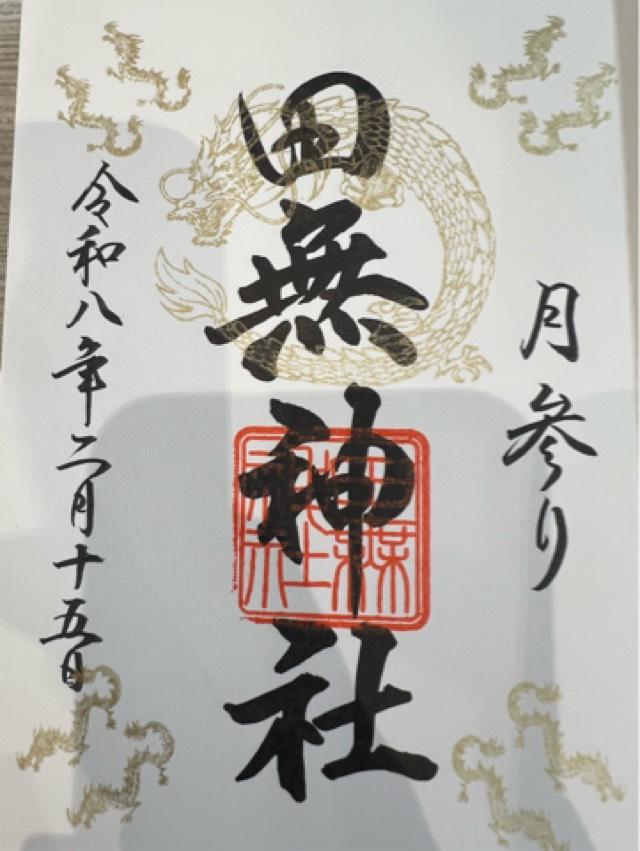 月参り
田無神社
令和八年二月十五日